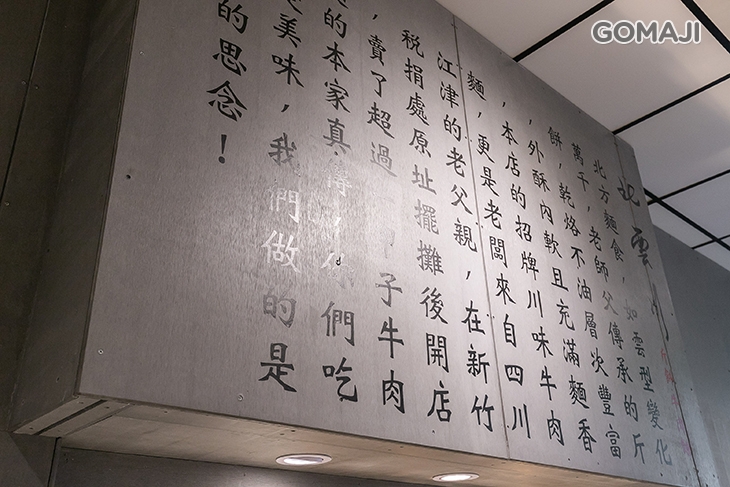 北雲
北方麵食，如雲型變化
萬千，老師父傳承的斤
餅，乾烙不油層次豐富
，外酥內軟且充滿麵香
，本店的招牌川味牛肉
麵，更是老闆來自四川
江津的老父親，在新竹
稅捐處原址擺攤後開店
，賣了超過子牛肉
的本家真傳，們吃
美味，我們做的是
的思念！
GOMAJI